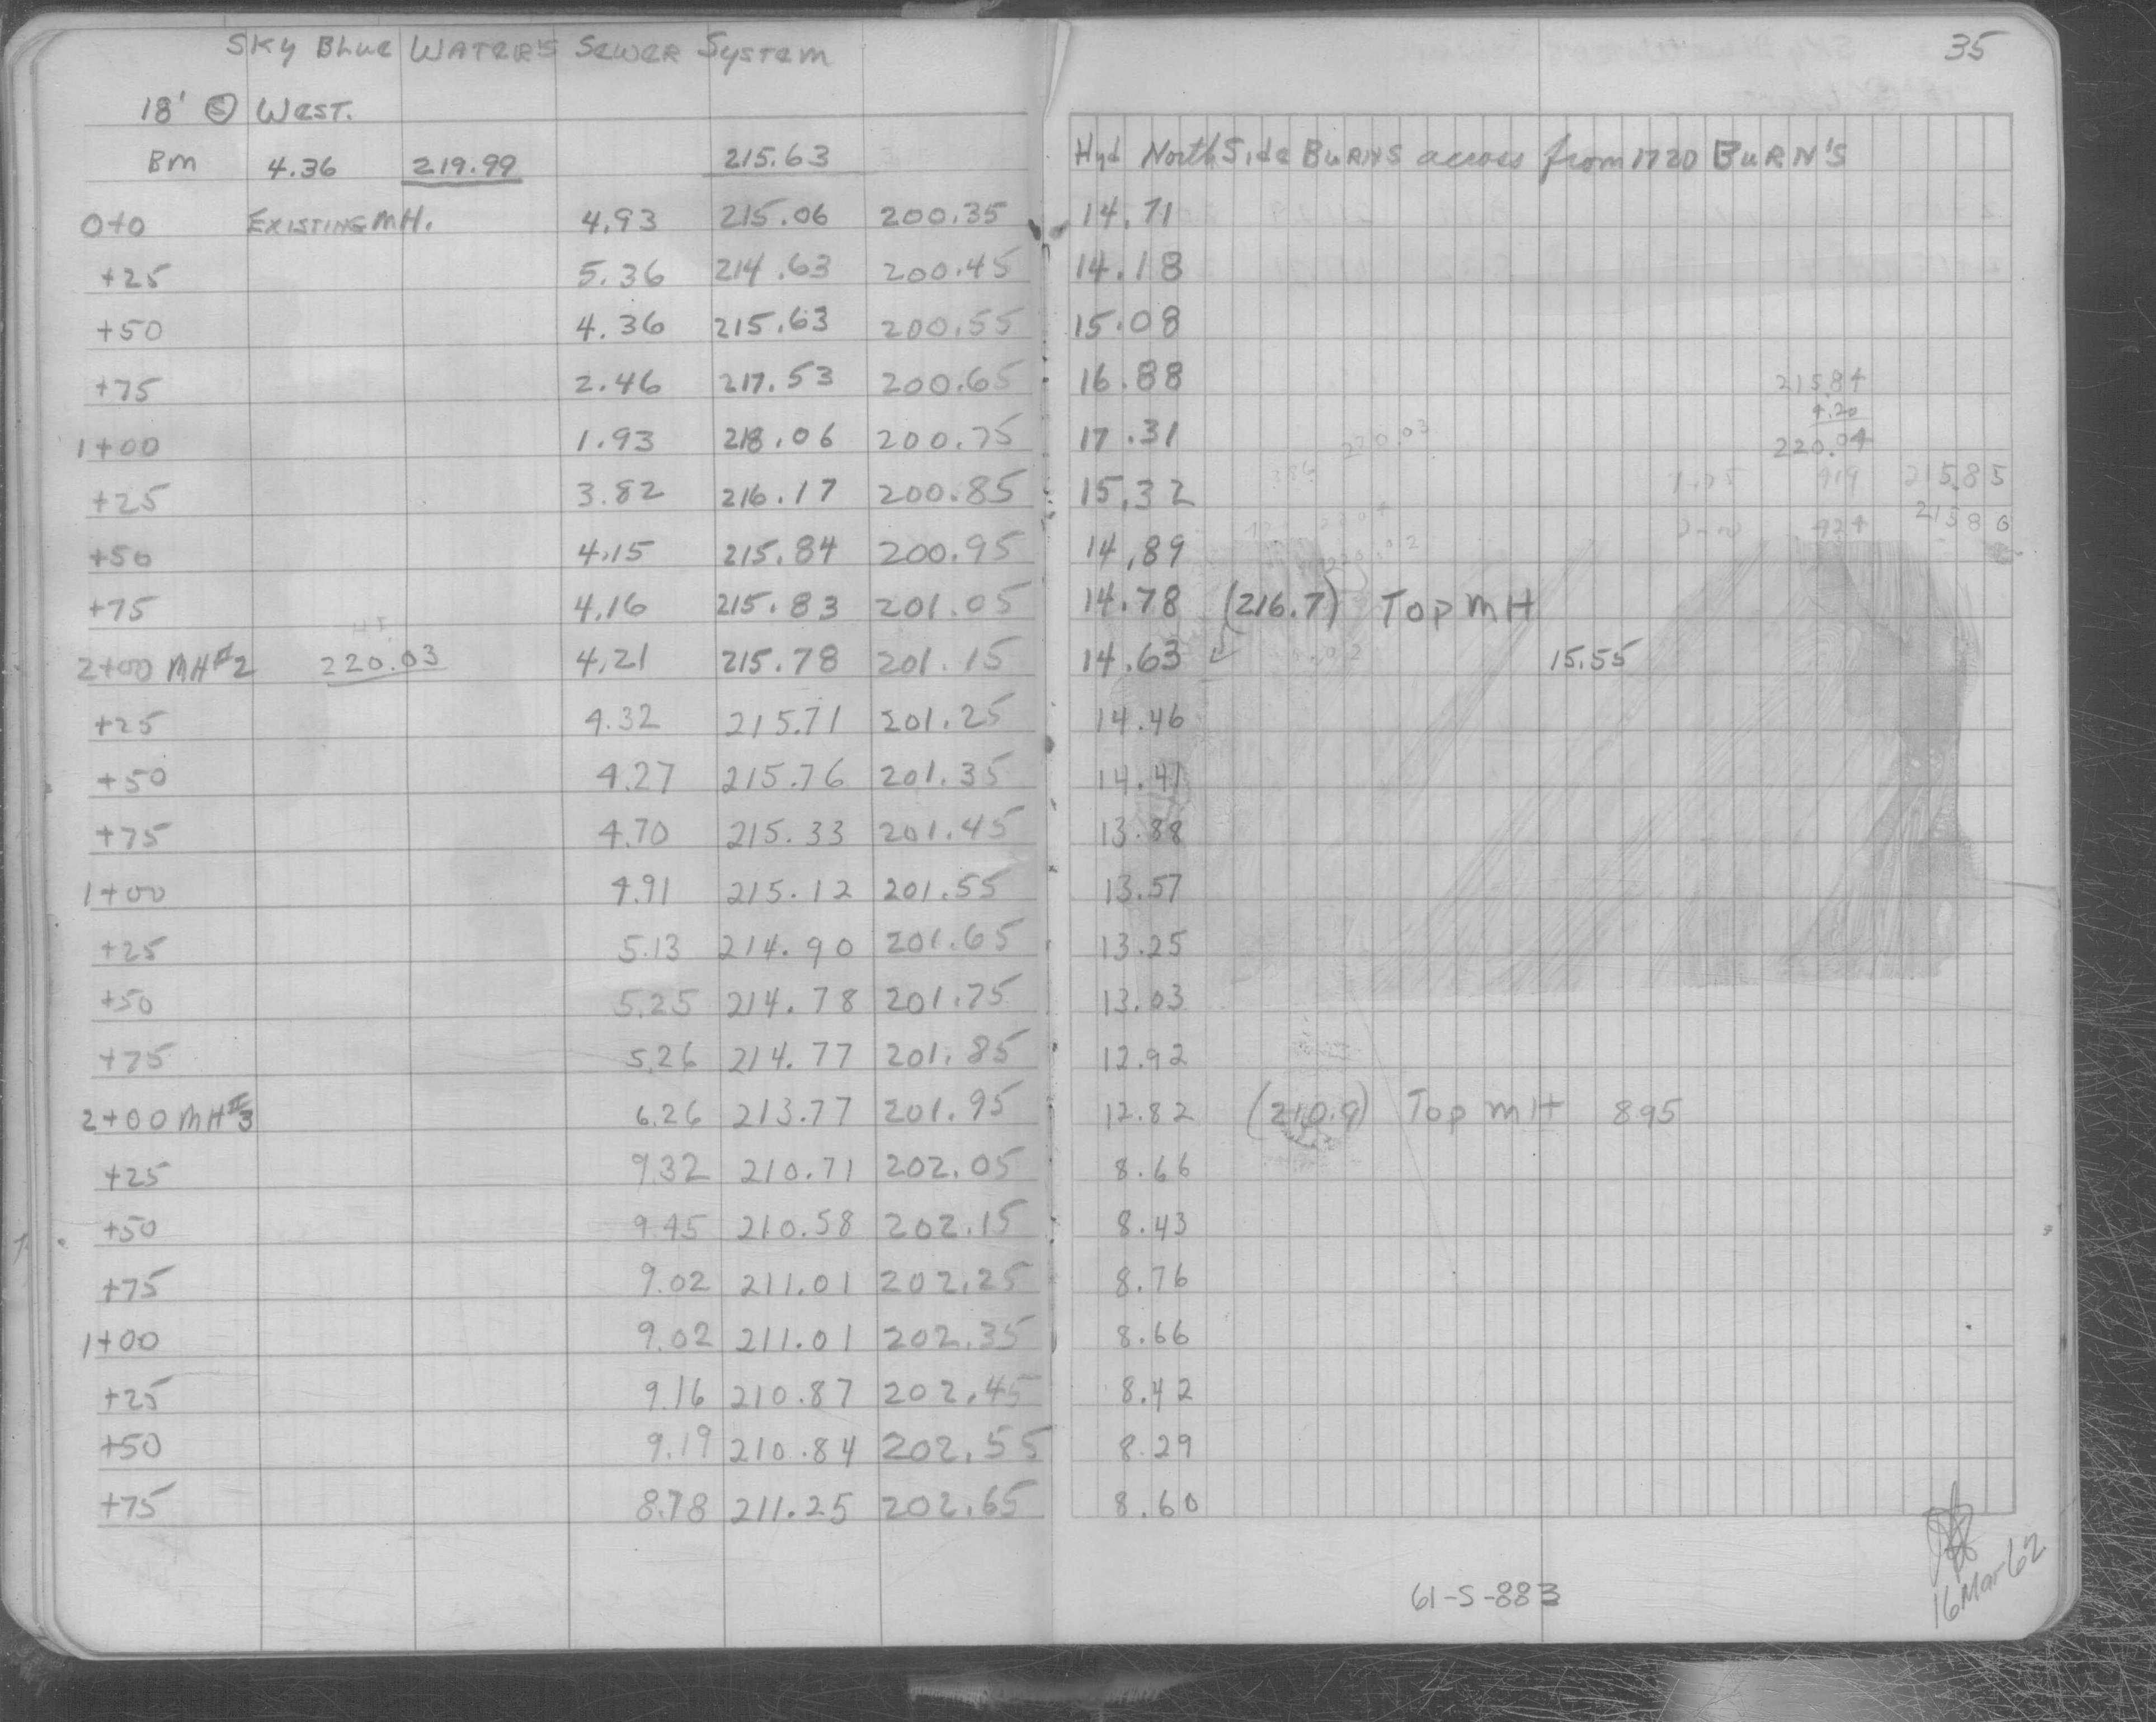 Sky Blue Waters Sewer System 35
18' Ⓢ West.
BM 4.36 219.99 215.63 Hyd North Side BURNS across from 1720 BURN'S
0+0 EXISTING MH. 4.93 215.06 200.35 14.71
+25 5.36 214.63 200.45 14.18
+50 4.36 215.63 200.55 15.08
+75 2.46 217.53 200.65 16.88 215.84
4.20
1+00 1.93 218.06 200.75 17.31 220.03 220.04
+25 3.82 216.17 200.85 15.32 419 215.85
+50 4.15 215.84 200.95 14.89 424 215.80
+75 4.16 215.83 201.05 14.78 (216.7) Top MH
2+00 MH#2 220.03 4.21 215.78 201.15 14.63 15.55
+25 4.32 215.71 201.25 14.46
+50 4.27 215.76 201.35 14.41
+75 4.70 215.33 201.45 13.88
1+00 4.91 215.12 201.55 13.57
+25 5.13 214.90 201.65 13.25
+50 5.25 214.78 201.75 13.03
+75 5.26 214.77 201.85 12.92
2+00 MH#3 6.26 213.77 201.95 12.82 (210.9) Top MH 895
+25 9.32 210.71 202.05 8.66
+50 9.45 210.58 202.15 8.43
+75 9.02 211.01 202.25 8.76
1+00 9.02 211.01 202.35 8.66
+25 9.16 210.87 202.45 8.42
+50 9.19 210.84 202.55 8.29
+75 8.78 211.25 202.65 8.60
61-S-883
16 Mar 62